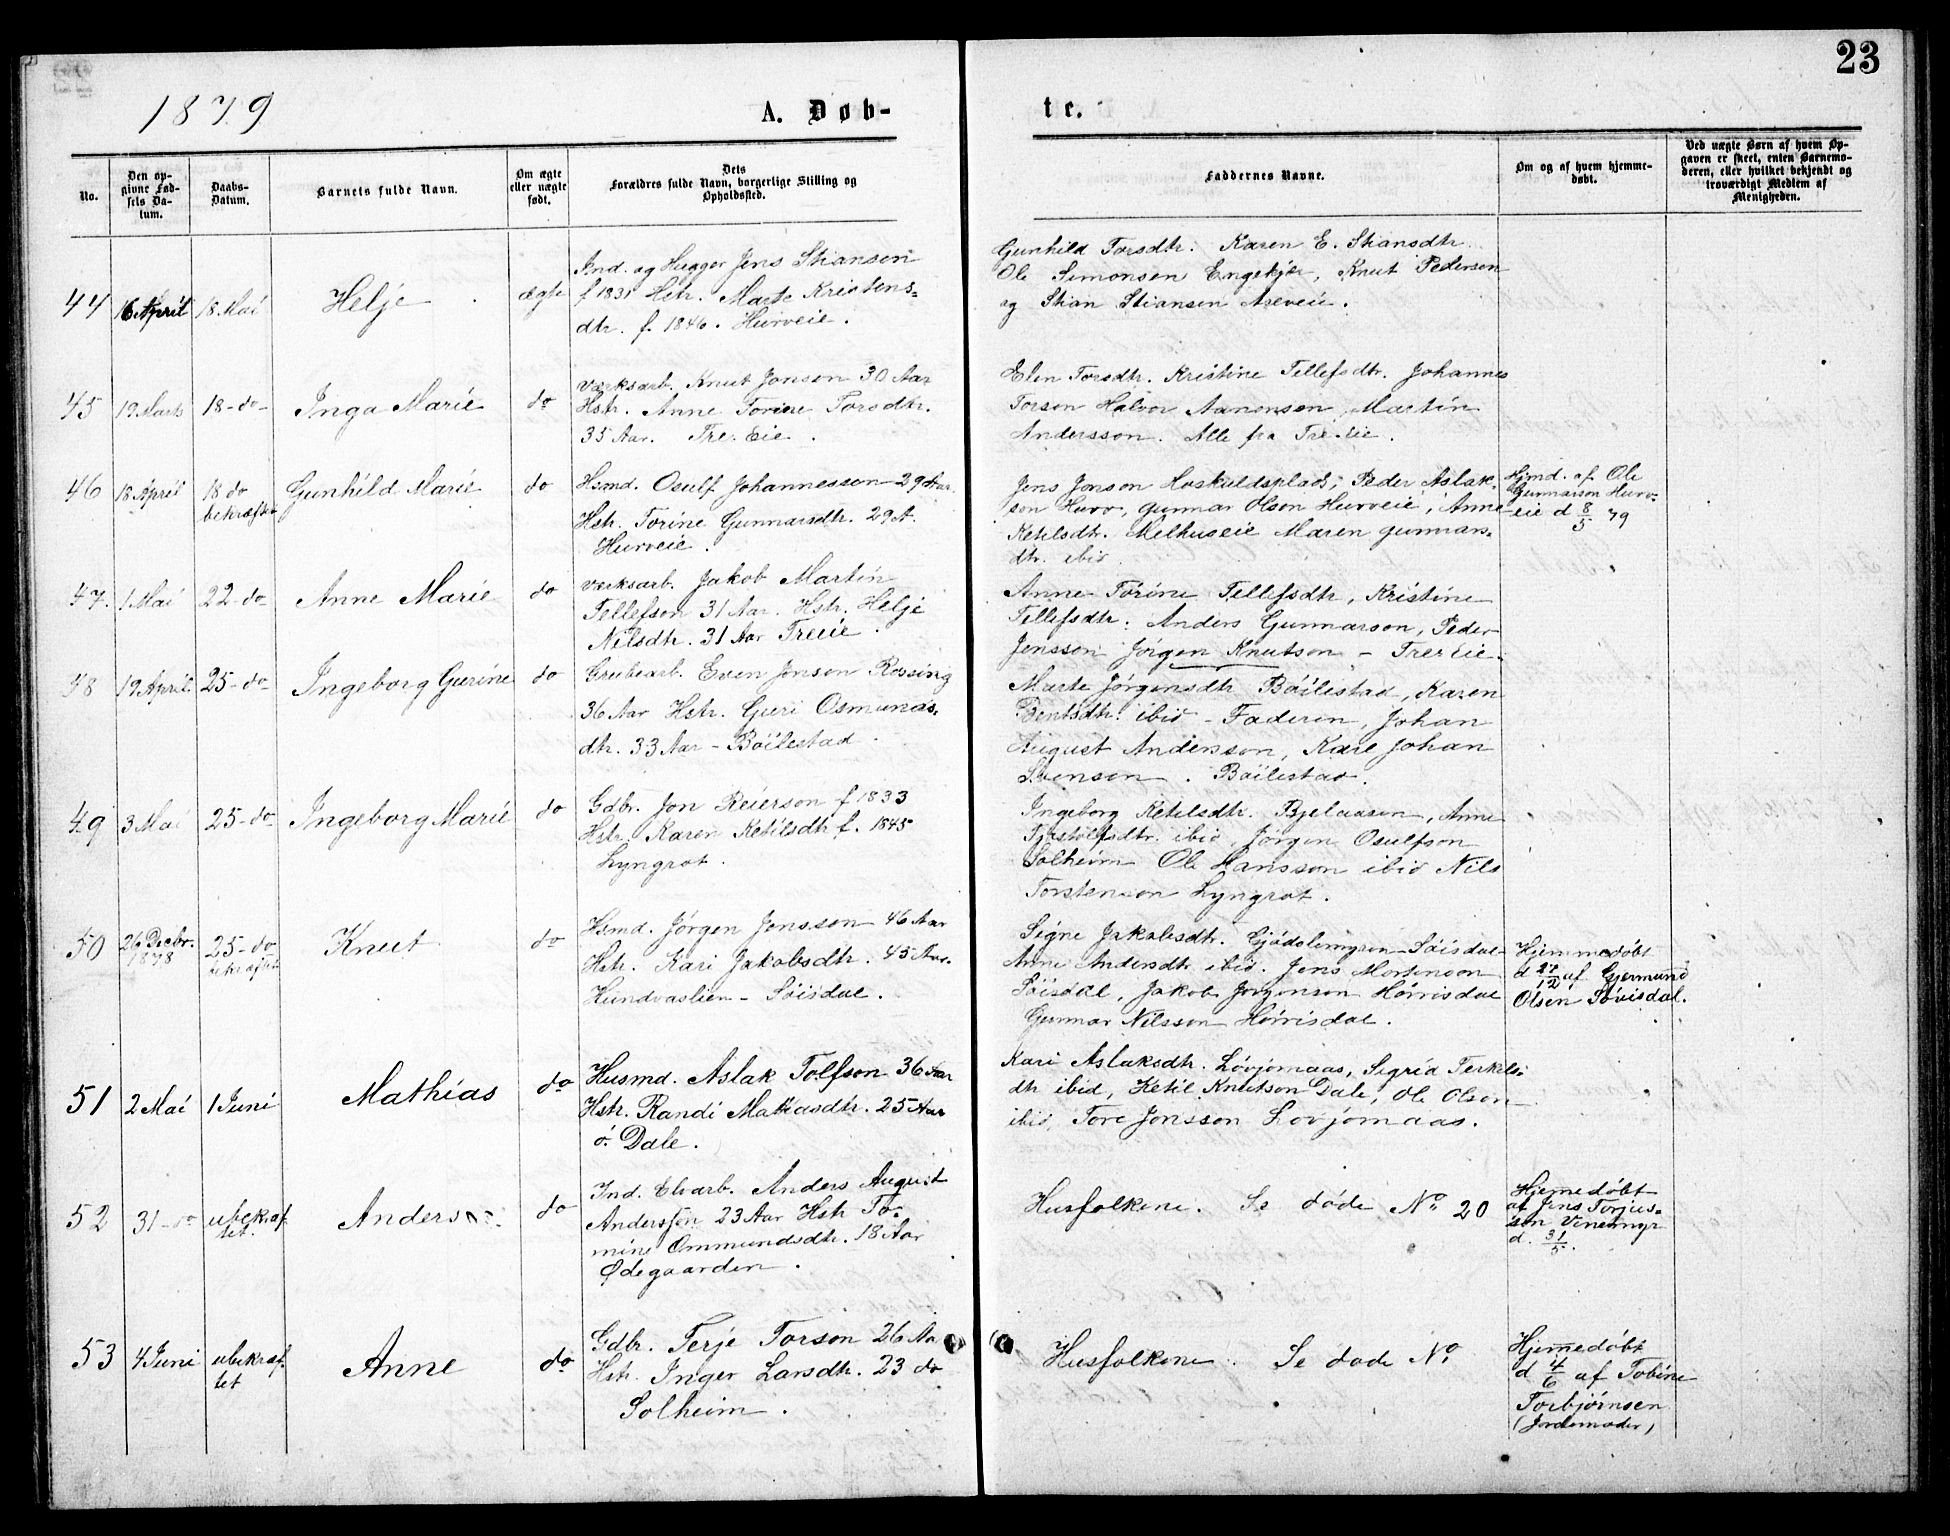 23
1879
A. Døb-
te.
No.
Den op-
givne Fød-
sels Da-
tum.
Daabs-
Datum.
Barnets fulde Navn.
Om ægte
eller uægte
født.
Dets
Forældres fulde Navn, borgerlige Stilling og
Opholdssted.
Faddernes Navne.
Om og af hvem hjemme-
døbt.
Ved uægte Børn af hvem Op-
gaven er skeet, enten Barnemo-
deren, eller hvilket bekjendt og
troværdigt Medlem af
Menigheden.
44
16 April
18 Mai
Helje
ægte
Ind. og Hugger Jens Stiansen
f 1831 Hstr. Marte Kristens-
dtr. f. 1846. Hurveie.
Gunhild Torsdtr. Karen E. Stiansdtr
Ole Simonsen Engekjer, Knut Pedersen
og Stian Stiansen Aseveie.
45
19 Marts
18-do-
Inga Marie
do
Værksarb. Knut Jonson 30 Aar
Hstr. Anne Torine Torsdtr.
35 Aar. Tre. Eie.
Elen Torsdtr. Kristine Tellefsdtr. Johannes
Torson Halvor Aanonsen, Martin
Andersson. Alle fra Tre Eie.
46
18 April
18 do
bekræftet
Gunhild Marie
do
Hsmd. Osulf Johannesson 29 Aar.
Hstr. Torine Gunnarsdtr. 29 A.
Hurveie.
Jens Jonson Hoskuldsplads, Peder Aslak-
son Hurv, Gunnar Olson Hurveie, Anne
Ketilsdtr. Melhuseie Maren Gunnars-
dtr. ibid
Hjmd. af Ole
Gunnarson Hurv-
eie d 8/5 79
47.
1 Mai
22-do
Anne Marie
do
Værksarb. Jakob Martin
Tellefson 31 Aar. Hstr. Helje
Nilsdtr. 31 Aar Treeie.
Anne Torine Tellefsdtr, Kristine
Tellefsdtr: Anders Gunnarson, Peder
Jensson Jörgen Knutson - Tre Eie.
48
19 April
25-do
Ingeborg Gurine
do
Grubearb. Even Jonson Rossing
36 Aar Hstr. Guri Osmunds-
dtr. 33 Aar - Böilestad.
Marte Jörgensdtr Böilestad, Karen
Bentsdtr: ibid - Faderen, Johan
August Andersson, Karl Johan
Svenson. Böilestad.
49
3 Mai
25-do
Ingeborg Marie
do
Gdbr. Jon Reierson f 1833
Hstr. Karen Ketilsdtr f. 1845
Lyngrot.
Ingeborg Ketilsdtr. Bjelaasen, Anne
Tjøstolfsdtr. ibid, Jörgen Osulfson
Solheim Ole Hansson ibid Nils
Torstenson Lyngrot.
50
26 Decbr.
1878
25-do
bekræftet
Knut
do
Hsmd. Jörgen Jonsson 46 Aar
Hstr. Kari Jakobsdtr. 45 Aar.
Hundvaslien - Söisdal.
Signe Jakobsdtr. Gjødslemyren Söisdal
Anne Andersdtr ibid. Jens Mortenson
Söisdal, Jakob Jörgenson Hörrisdal
Gunnar Nilsson Hörrisdal.
Hjemmedöbt
d 27/12 af Gjermund
Olsen Sövisdal.
51
2 Mai
1 Juni
Mathias
do
Husmd. Aslak Tolfson 36 Aar
Hstr. Randi Mathiasdtr. 25 Aar
ö. Dale.
Kari Aslaksdtr. Lövjomaas, Sigrid Terkels-
dtr ibid, Ketil Knutson Dale, Ole Olson
ibid, Tore Jonsson Lovjomaas.
52
31-do
ubekræf-
tet.
Anders
do
Ind. Elvarb. Anders August
Andersson 23 Aar Hstr To-
mine Ommundsdtr. 18 Aar
Ødegaarden.
Husfolkene. Se döde No 20
Hjemedöbt
af Jens Torjus-
sen Vinemyr
d. 31/5.
53
4 Juni
ubekræf-
tet
Anne
do
Gdbr. Terje Torson 26 Aar
Hstr. Inger Larsdtr. 23 do
Solheim.
Husfolkene. Se döde No
Hjemedöbt
d 4/6 af Tobine
Torbjörnsen
(Jordemoder)